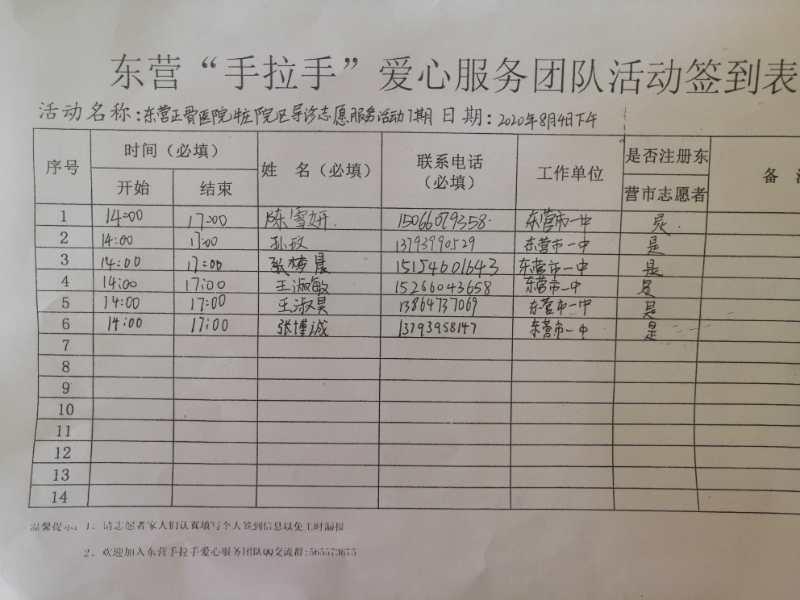 东营“手拉手”爱心服务团队活动签到表
活动名称:东营正骨医院牛庄院区导诊志愿服务活动7期 日期:2020年8月4日下午
序号 时间（必填） 姓 名（必填） 联系电话（必填） 工作单位 是否注册东营市志愿者 备
开始 结束
1 14:00 17:00 陈雪妍 15066079358 东营市一中 是
2 14:00 17:00 孙政 13793990529 东营市一中 是
3 14:00 17:00 张梦晨 15154601643 东营市一中 是
4 14:00 17:00 王淑敏 15266043658 东营市一中 是
5 14:00 17:00 王淑昊 13864737069 东营市一中 是
6 14:00 17:00 张博诚 13793958147 东营市一中 是
7
8
9
10
11
12
13
14
温馨提示: 1、请志愿者家人们认真填写个人签到信息以免工时漏报
2、欢迎加入东营手拉手爱心服务团队QQ交流群:565573675